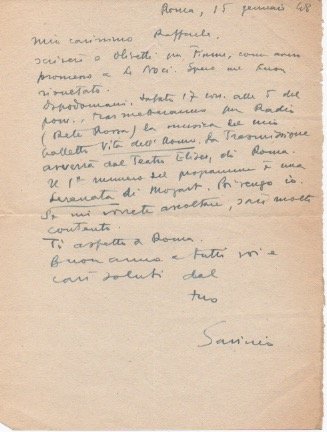 Roma, 15 gennaio 48
Mio carissimo Raffaele,
scriverò a Olivetti per Fiume, come avevo
promesso a Lo Voci. Spero un buon
risultato.
Dopodomani, sabato 17 corr. alle 5 del
pom., trasmetteranno per Radio
(Rete Rossa) la musica del mio
balletto Vita dell'Uomo. La Trasmissione
avverrà dal Teatro Eliseo, di Roma.
Il 1° numero del programma è una
Serenata di Mozart. Poi vengo io.
Se mi vorrete ascoltare, sarò molto
contento.
Ti aspetto a Roma.
Buon anno a tutti voi e
cari saluti dal
tuo
Savinio